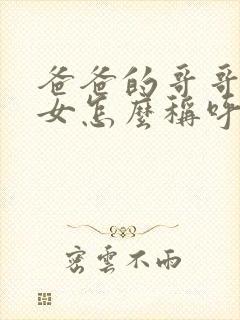 爸爸的哥哥
女怎麼稱呼
密雲不雨